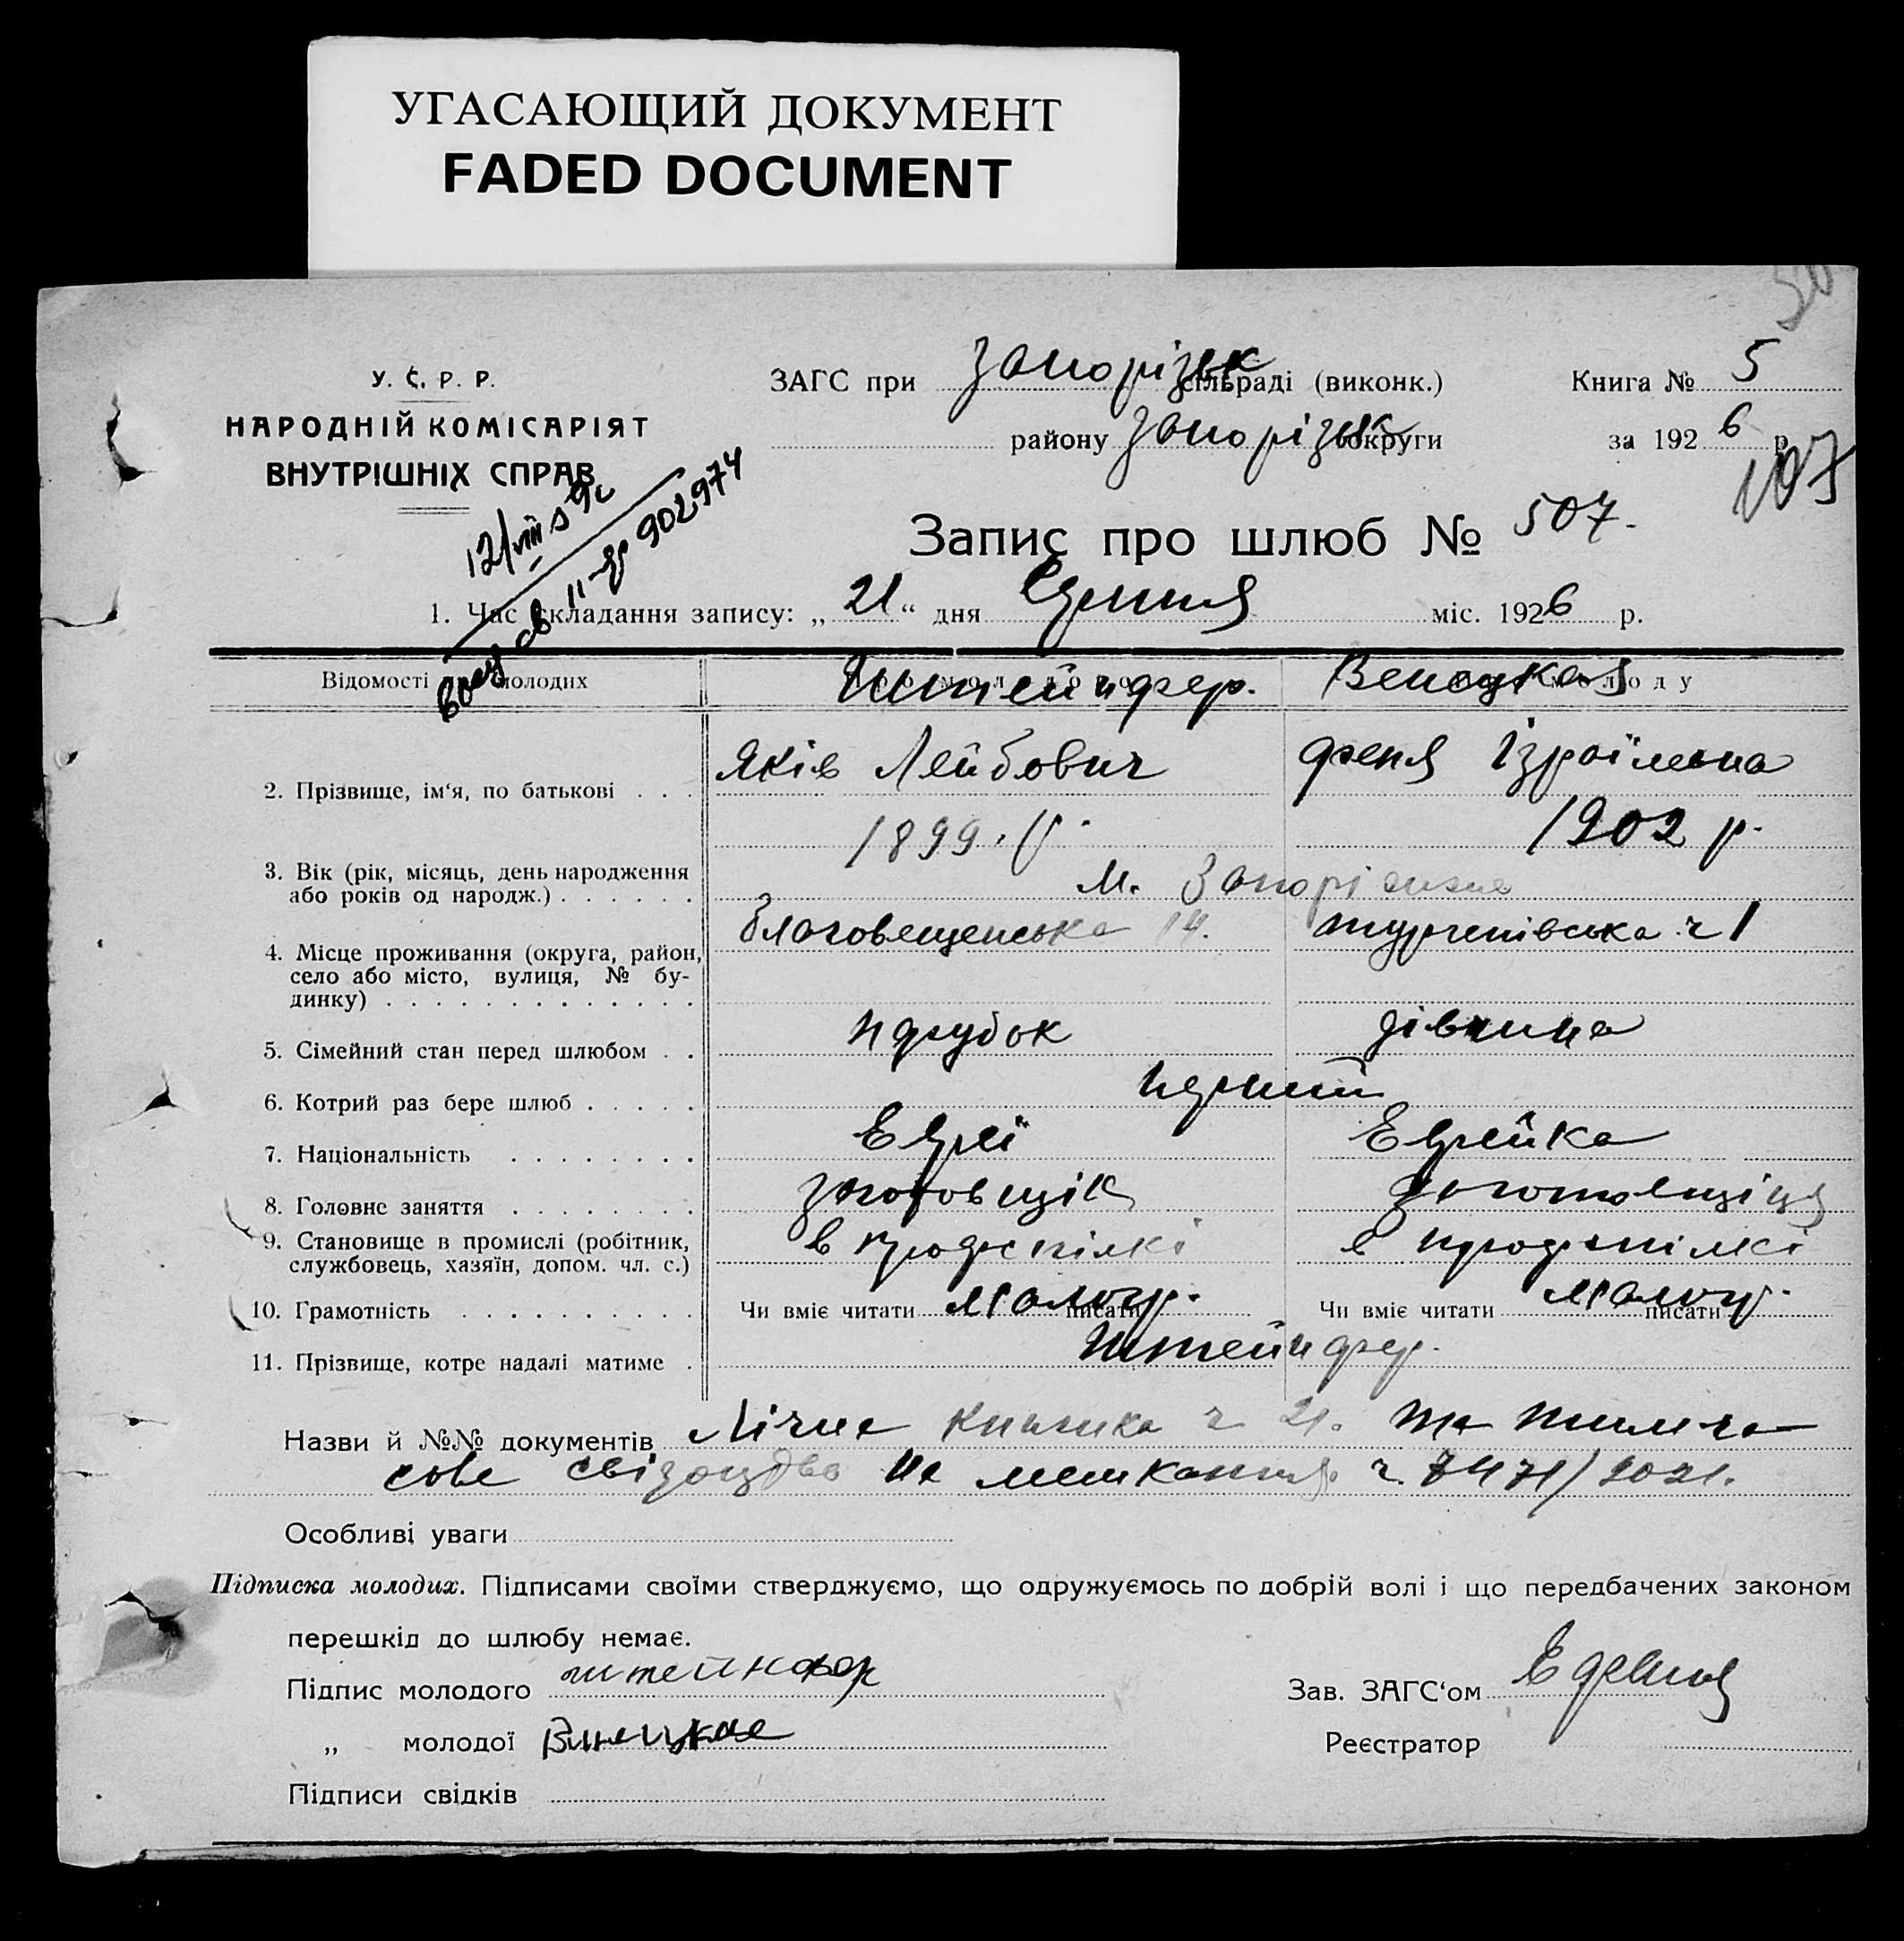 УГАСАЮЩИЙ ДОКУМЕНТ
FADED DOCUMENT
50
У. С. Р. Р.
НАРОДНІЙ КОМІСАРІЯТ
ВНУТРІШНІХ СПРАВ
ЗАГС при Запорізьк сільраді (виконк.)
району Запорізьк округи
Книга № 5
за 1926 р.
107
Запис про шлюб № 507.
902974
1. Час складання запису: „21“ дня Серпня міс. 1926 р.
Відомості молодих Штейнфер. Венецкая
2. Прізвище, ім‘я, по батькові Яків Лейбович Феня Ізраїлівна
3. Вік (рік, місяць, день народження або років од народж.) 1899 р. 1902 р.
м. Запоріжжя
4. Місце проживання (округа, район, село або місто, вулиця, № будинку) Благовещенська 14. ч 1
5. Сімейний стан перед шлюбом парубок дівчина
6. Котрий раз бере шлюб перший
7. Національність Еврей Еврейка
8. Головне заняття заготовщік заготовщіця
9. Становище в промислі (робітник, службовець, хазяїн, допом. чл. с.) в продспілкі в продспілкі
10. Грамотність Чи вміє читати малогр. писати Чи вміє читати малогр. писати
11. Прізвище, котре надалі матиме Штейнфер.
Назви й №№ документів Лічна книжка ч 21. та тимча
сове свідоцтво на мешкання ч. 7471/2021.
Особливі уваги
Підписка молодих. Підписами своїми стверджуємо, що одружуємось по добрій волі і що передбачених законом
перешкід до шлюбу немає.
Підпис молодого штейнфер
Зав. ЗАГС‘ом
„ молодої Винецкая
Реєстратор
Підписи свідків